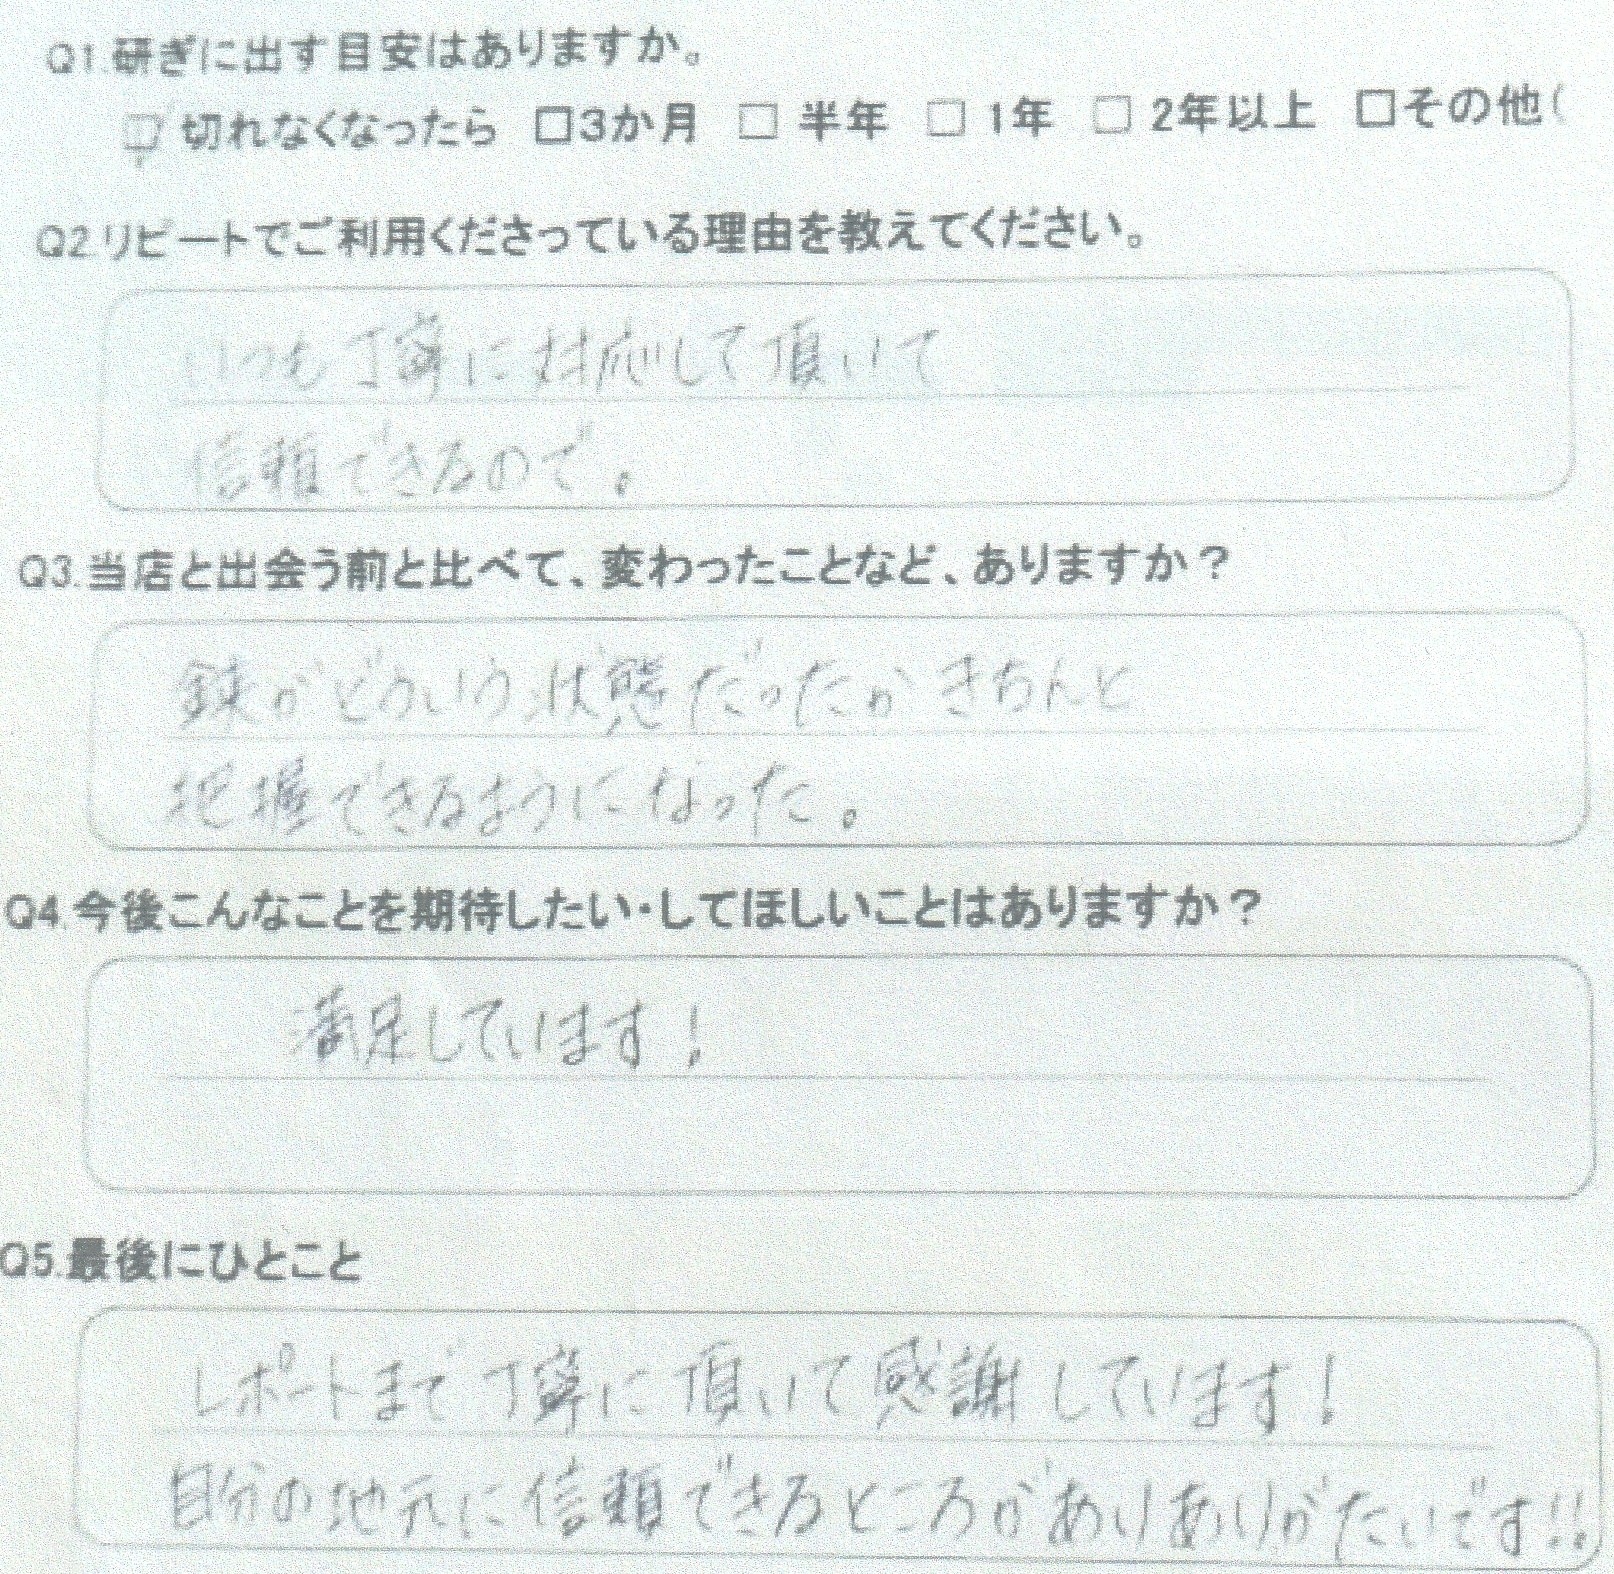 Q1.研ぎに出す目安はありますか。
☑ 切れなくなったら □3か月 □ 半年 □ 1年 □ 2年以上 □その他(
Q2.リピートでご利用くださっている理由を教えてください。
いつも丁寧に対応して頂いて
信頼できるので。
Q3.当店と出会う前と比べて、変わったことなど、ありますか？
鋏がどういう状態だったかきちんと
把握できるようになった。
Q4.今後こんなことを期待したい・してほしいことはありますか？
満足しています！
Q5.最後にひとこと
レポートまで丁寧に頂いて感謝しています！
自分の地元に信頼できるところがありありがたいです!!